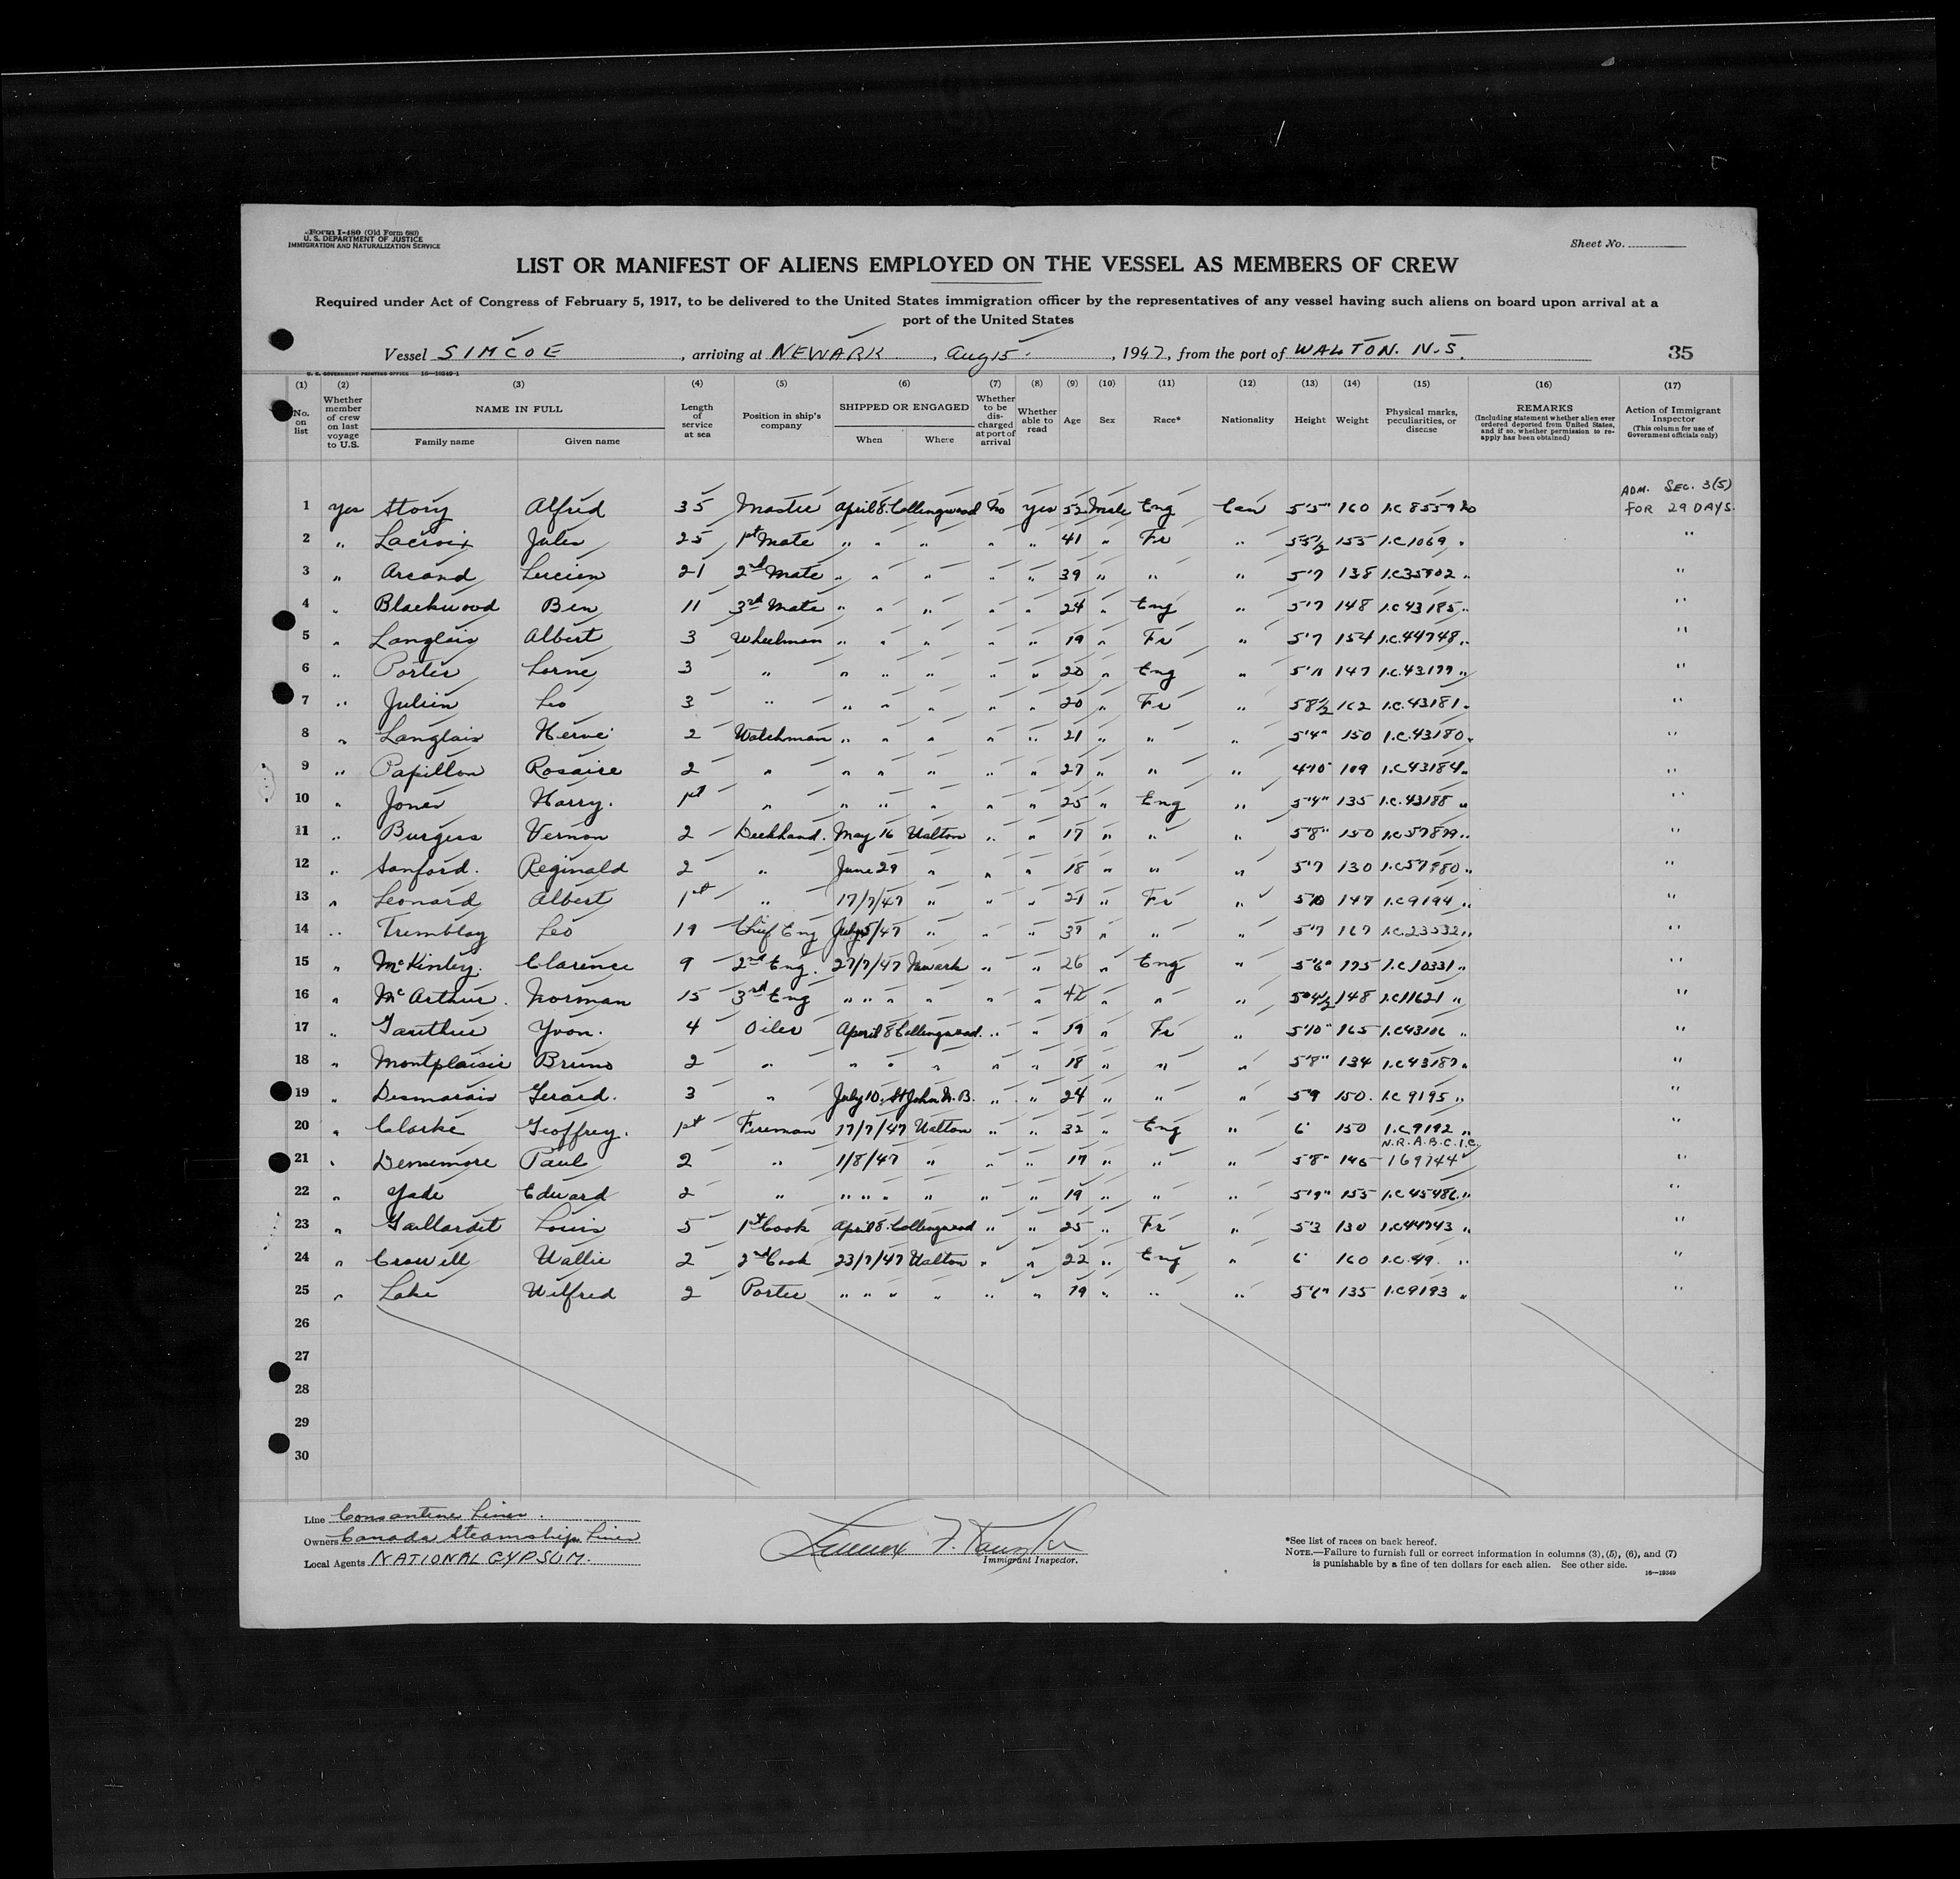 Form I-480 (Old Form 680)
U. S. DEPARTMENT OF JUSTICE
IMMIGRATION AND NATURALIZATION SERVICE
Sheet No.
LIST OR MANIFEST OF ALIENS EMPLOYED ON THE VESSEL AS MEMBERS OF CREW
Required under Act of Congress of February 5, 1917, to be delivered to the United States immigration officer by the representatives of any vessel having such aliens on board upon arrival at a
port of the United States
Vessel SIMCOE, arriving at NEWARK, Aug 15, 1947, from the port of WALTON. N.S.
35
U. S. GOVERNMENT PRINTING OFFICE 16—19349-1
(1) (2) (3) (4) (5) (6) (7) (8) (9) (10) (11) (12) (13) (14) (15) (16) (17)
No. on list
Whether member of crew on last voyage to U.S.
NAME IN FULL
Family name
Given name
Length of service at sea
Position in ship's company
SHIPPED OR ENGAGED
When
Where
Whether to be discharged at port of arrival
Whether able to read
Age
Sex
Race*
Nationality
Height
Weight
Physical marks, peculiarities, or disease
REMARKS
(Including statement whether alien ever ordered deported from United States, and if so, whether permission to reapply has been obtained)
Action of Immigrant Inspector
(This column for use of Government officials only)
ADM. SEC. 3(5)
1 yes Story Alfred 35 Master April 8. Collingwood No yes 52 Male Eng Can 5'5" 160 I.C 8559 FOR 29 DAYS.
2 " Lacroix Jules 25 1st Mate " " " " " 41 " Fr " 5'5½ 155 I.C1069 " "
3 " Arcand Lucien 21 2nd Mate " " " " " 39 " " " 5'7 138 I.C35902 " "
4 " Blackwood Ben 11 3rd Mate " " " " " 24 " Eng " 5'7 148 I.C43185 " "
5 " Langlais Albert 3 Wheelman " " " " " 19 " Fr " 5'7 154 I.C.44748 " "
6 " Porter Lorne 3 " " " " " " 20 " Eng " 5'11 147 I.C.43179 " "
7 " Julien Leo 3 " " " " " " 20 " Fr " 5'8½ 162 I.C.43181 " "
8 " Langlais Herve 2 Watchman " " " " " 21 " " " 5'4" 150 I.C.43180 " "
9 " Papillon Rosaire 2 " " " " " " 27 " " " 4'10" 109 I.C43184 " "
10 " Jones Harry. 1st " " " " " " 25 " Eng " 5'4" 135 I.C.43188 " "
11 " Burgess Vernon 2 Deckhand. May 16 Walton " " 17 " " " 5'8" 150 I.C57879 " "
12 " Sanford. Reginald 2 " June 29 " " " 18 " " " 5'7 130 I.C57880 " "
13 " Leonard Albert 1st " 17/7/47 " " " 21 " Fr " 5'10 147 I.C9194 " "
14 " Tremblay Leo 19 Chief Eng July 5/47 " " " 37 " " " 5'7 167 I.C.23532 " "
15 " McKinley. Clarence 9 2nd Eng. 27/7/47 Newark " " 26 " Eng " 5'6" 175 I.C10331 " "
16 " McArthur. Norman 15 3rd Eng " " " " " " 42 " " " 5'4½ 148 I.C11621 " "
17 " Gauthier Yvon. 4 Oiler April 8 Collingwood. " " 19 " Fr " 5'10" 165 I.C43106 " "
18 " Montplaisir Bruno 2 " " " " " " 18 " " " 5'8" 134 I.C43187 " "
19 " Desmarais Gerard. 3 " July 10, St John N.B. " " 24 " " " 5'9 150. I.C 9195 " "
20 " Clarke Geoffrey. 1st Fireman 17/7/47 Walton " " 32 " Eng " 6' 150 I.C9192 " "
N.R.A.B.C.I.C.
21 " Densmore Paul 2 " 1/8/47 " " " 17 " " " 5'8" 146 169744 "
22 " Yade Edward 2 " " " " " " " 19 " " " 5'9" 155 I.C45486 " "
23 " Gaillardet Louis 5 1st Cook April 8. Collingwood " " 25 " Fr " 5'3 130 I.C44743 " "
24 " Crowell Wallie 2 2nd Cook 23/7/47 Walton " " 22 " Eng " 6' 160 I.C.49. " "
25 " Lake Wilfred 2 Porter " " " " " " 19 " " " 5'6" 135 I.C9193 " "
26
27
28
29
30
Line Consantine Lines.
Owners Canada Steamship Lines
Local Agents NATIONAL GYPSUM.
Immigrant Inspector.
*See list of races on back hereof.
NOTE.—Failure to furnish full or correct information in columns (3), (5), (6), and (7)
is punishable by a fine of ten dollars for each alien. See other side.
16—19349